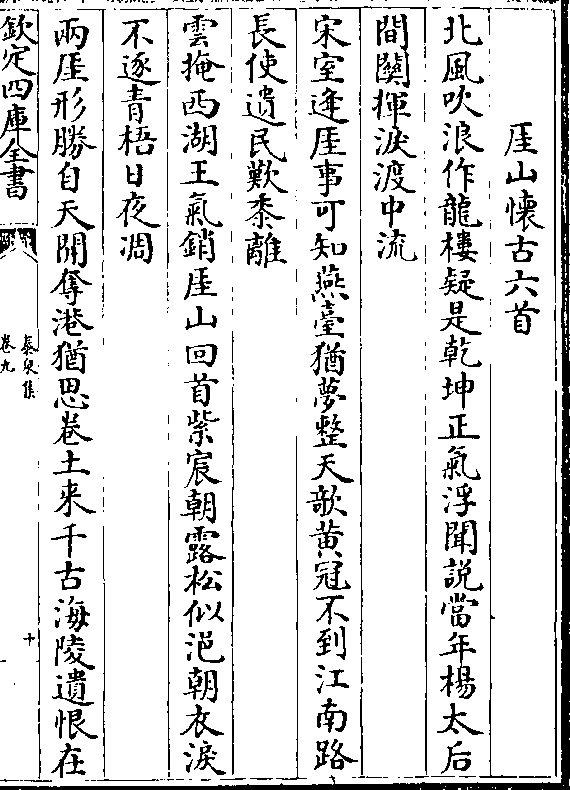 厓山懷古六首
北風吹浪作龍樓疑是乾坤正氣浮聞説當年楊太后
間關揮淚渡中流
宋室逢厓事可知燕臺猶夢整天欹黄冠不到江南路
長使遺民歎黍離
雲掩西湖王氣銷厓山回首紫宸朝露松似浥朝衣淚
不逐青梧日夜凋
兩厓形勝自天開奪港猶思卷土来千古海陵遺恨在
欽定四庫全書
泰泉集
卷九
十